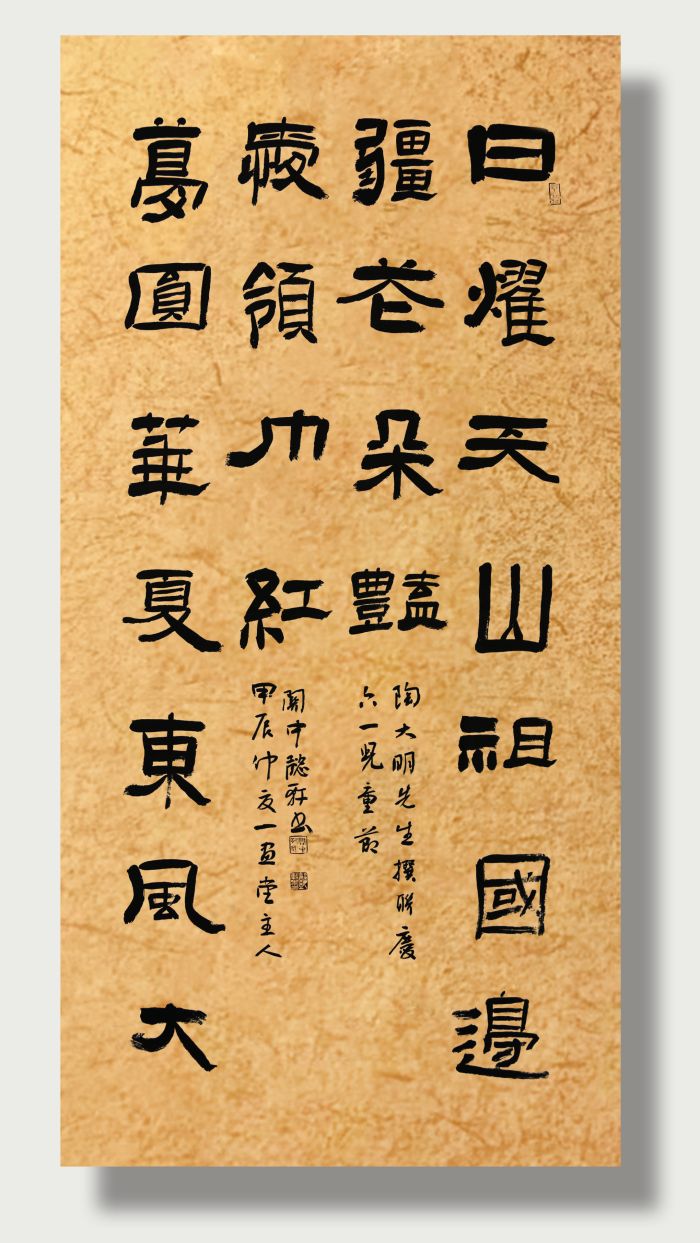 日耀天山祖國邊
疆花朵豔
陶大明先生撰聯慶
六一兒童節
夢圓華夏東風大
領巾紅
關中懿書
甲辰仲夏一畫堂主人